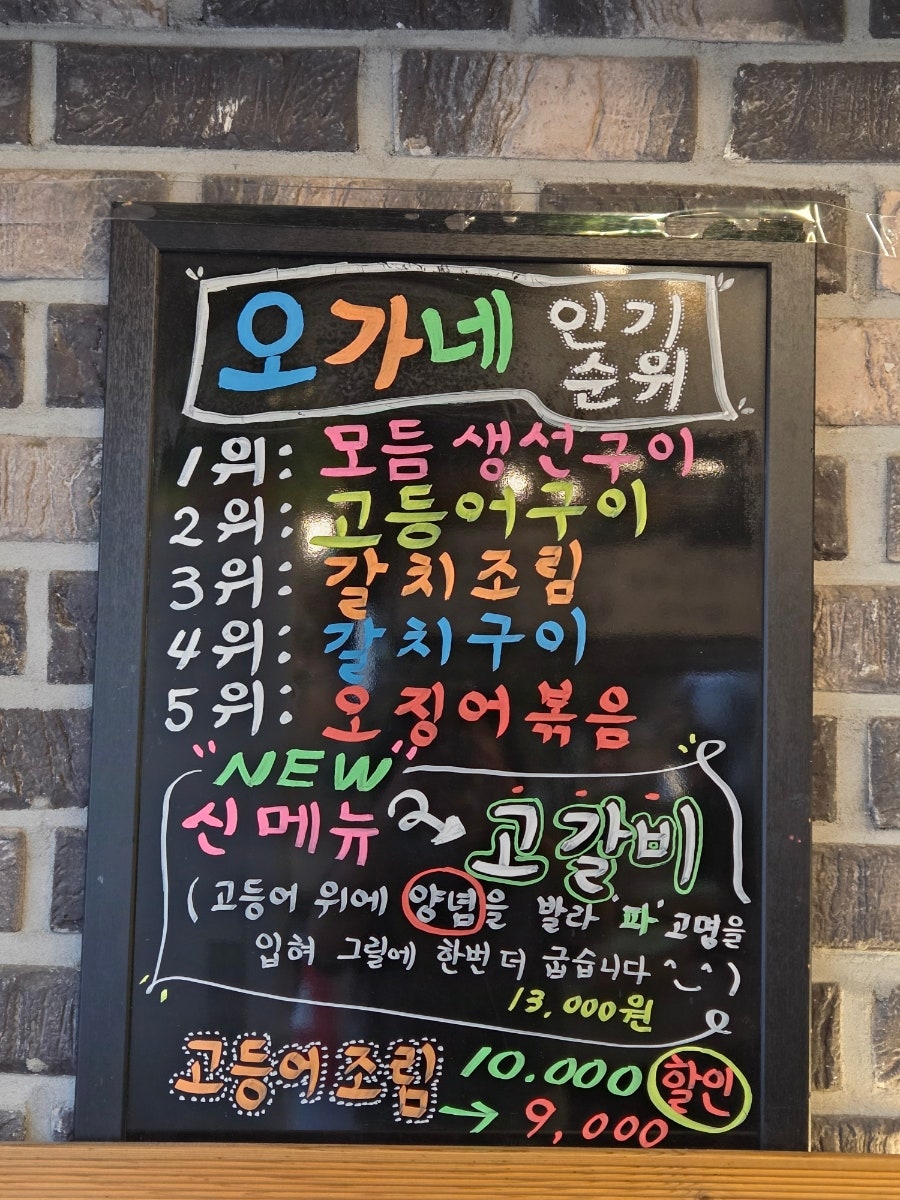 오가네 인기 순위
1위: 모듬 생선구이
2위: 고등어구이
3위: 갈치조림
4위: 갈치구이
5위: 오징어볶음
"NEW"
신메뉴 → 고갈비
(고등어 위에 양념을 발라 "파"고명을
입혀 그릴에 한번 더 굽습니다 ^_^)
13,000원
고등어조림 10.000 할인
→ 9,000